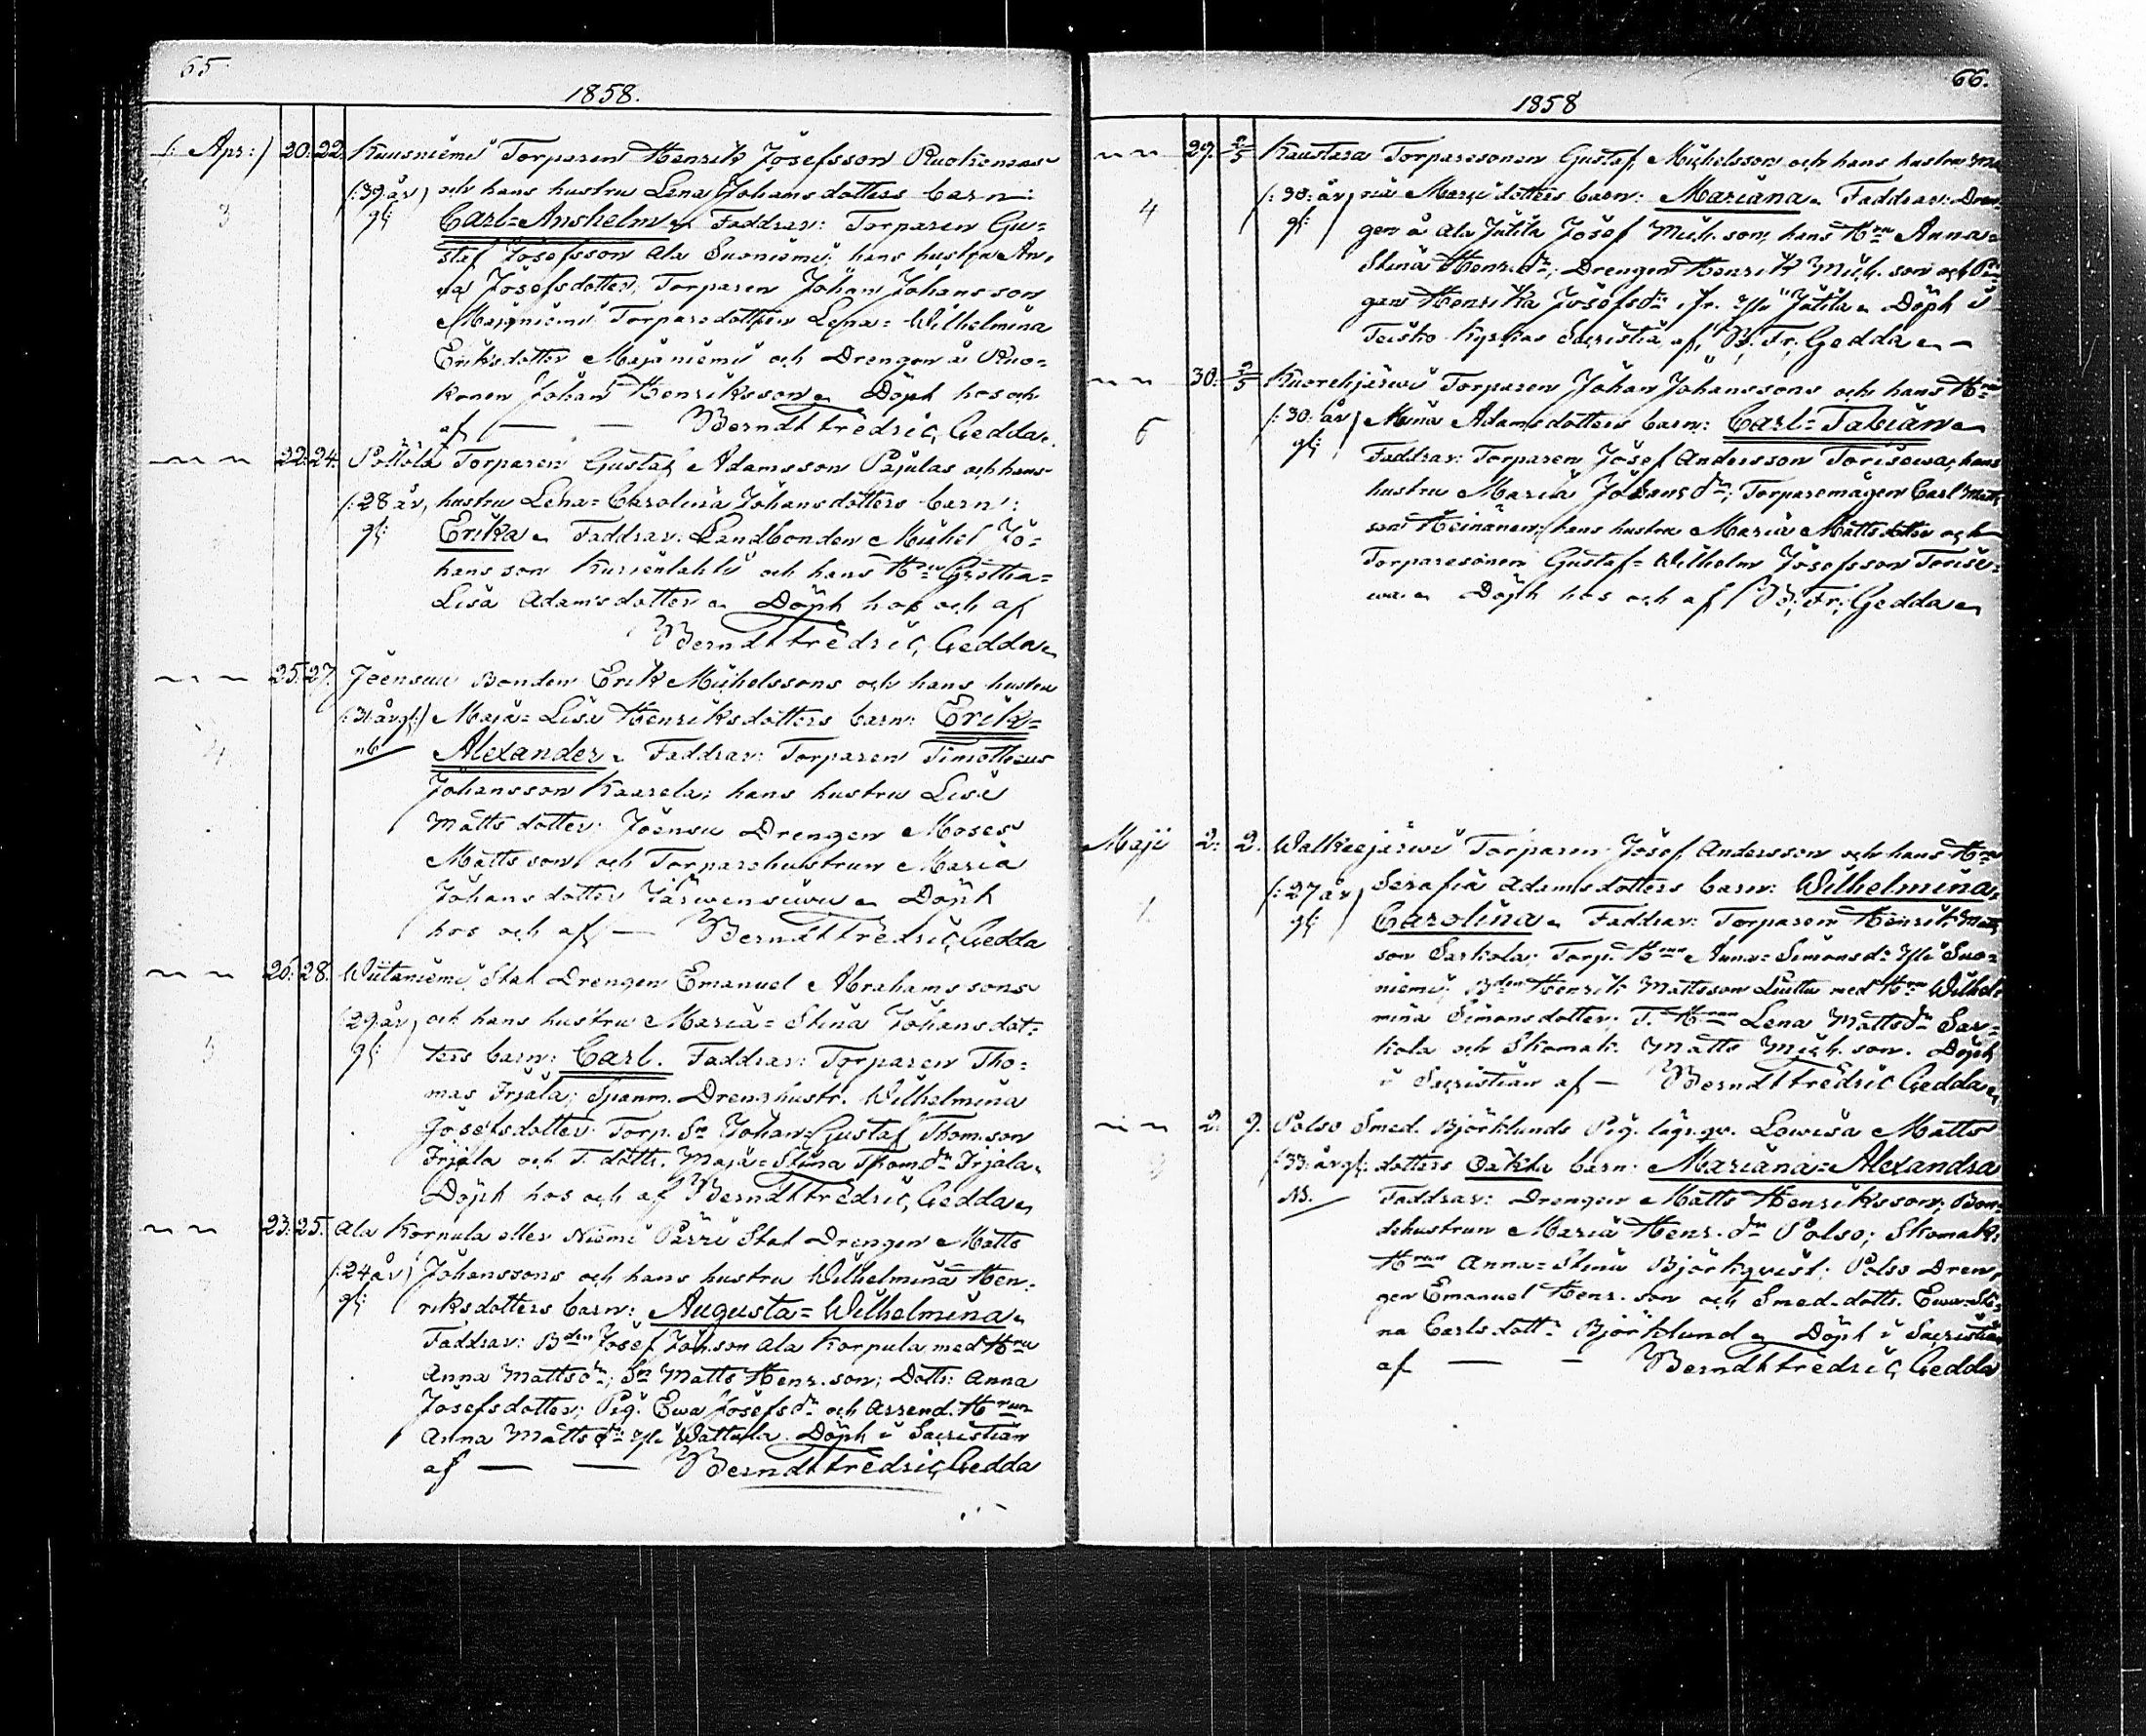 65.
1858.
(: Apr:) 20. 22. Kuusniemi Torparen Henrik Josefsson Ruokonens
(:39 år och hans hustru Lena Johansdotters barn:
3 gl:) Carl=Anshelm. Faddrar: Torparen Gu=
staf Josefsson Ala Suoniemi; hans hustru An=
na Josefsdotter; Torparen Johan Johansson
Majaniemi Torparedottren Lena=Wilhelmina
Eriksdotter Majaniemi och Drengen å Ruo=
konen Johan Henriksson. Döpt hos och
af — — Berndt Fredric Gedda.
22. 24. Pöllölä Torparen Gustaf Adamsson Pajulas och hans
(:28 år, hustru Lena=Carolina Johansdotters barn:
gl: Erika. Faddrar: Landbonden Michel Jo=
hansson Kurjenlahti och hans Hru Gretha=
Lisa Adamsdotter. Döpt hos och af
Berndt Fredric Gedda.
25. 27. Joensuu Bonden Erik Michelssons och hans hustru
(:31 år gl:) Maja=Lisa Henriksdotters barn: Erik=
4 nb Alexander. Faddrar: Torparen Timotheus
Johansson Kaarela; hans hustru Lisa
Mattsdotter; Joensu Drengen Moses
Mattsson och Torparehustrun Maria
Johansdotter Järwensuu. Döpt
hos och af — Berndt Fredric Gedda
26. 28. Wiitaniemi Stat Drengen Emanuel Abrahamssons
(29 år, och hans hustru Maria=Stina Johansdot=
5 gl: ters barn: Carl. Faddrar: Torparen Tho=
mas Irjala; Spanm. Drengshustr. Wilhelmina
Josefsdotter Torp. Sn Johan=Gustaf Thom.son
Irjala och T. dottr. Maja=Stina Thom.dr Irjala.
Döpt hos och af Berndt Fredric Gedda.
23. 25. Ala Korpula eller Niemi Pärri Stat Drengen Matts
(:24 år) Johanssons och hans hustru Wilhelmina Hen=
gl: riksdotters barn: Augusta=Wilhelmina.
Faddrar: Bden Josef Joh.son Ala Korpula med Hru
Anna Mattsdr; Sn Matts Henr.son; Dottr: Anna
Josefsdotter; Pig. Ewa Josefsdr och Arrend. Hrun
Anna Mattsdr Yli Wattula. Döpt i Sacristian
af — — Berndt Fredric Gedda
66.
1858
29. 2/5 Kaustara Torparesonen Gustaf Michelsson och hans hustru Ma
4 (:30: år ria Mariedotters barn: Mariana. Faddrar: Dren=
gl: gen å Ala Jutila Josef Mich.son, hans Hru Anna=
Stina Henr.dr; Drengen Henrik Mich.son och Pi
gan Henrika Josefsdr ifr. Yli Jutila. Döpt i
Teisko Kyrkas Sacristia af B. Fr. Gedda. —
30. 2/5 Kuorehjärwi Torparen Johan Johanssons och hans Hru
(:30: år) Mina Adamsdotters barn: Carl=Fabian.
gl: Faddrar: Torparen Josef Andersson Torisewa; hans
hustru Maria Johansdr; Torparemågen Carl Matts
son Heinänen; hans hustru Maria Mattsdotter och
Torparesonen Gustaf=Wilhelm Josefsson Torise=
wa. Döpt hos och af B: Fr: Gedda.
Maji 2. 2. Walkeejärwi Torparen Josef Andersson och hans Hru
(:27 år) Serafia Adamsdotters barn: Wilhelmina,
1. gl: Carolina. Faddrar: Torparen Henrik Matts
son Sarkola; Torp. Hrun Anna=Simonsdr Yli Suo=
niemi; Bden Henrik Mattsson Liuttu med Hru Wilhel
mina Simonsdotter; T. Hrun Lena Mattsdr Sar=
kola och Skomak. Matts Mich.son. Döpt
i Sacristian af — Berndt Fredric Gedda.
2. 9. Polso Smed. Björklunds Pig. lägr.qv. Lowisa Matts
(:33: år gl: dotters Oäkta barn: Mariana=Alexandra
NB. Faddrar: Drengen Matts Henriksson; Bon=
dehustrun Maria Henr.dr Polso; Skomak.
Hrun Anna=Stina Björkqvist; Polso Dren,
gen Emanuel Henr.son och Smed. dottr. Ewa=Sti=
na Carlsdottr Björklund. Döpt i Sacristian
af — — Berndt Fredric Gedda